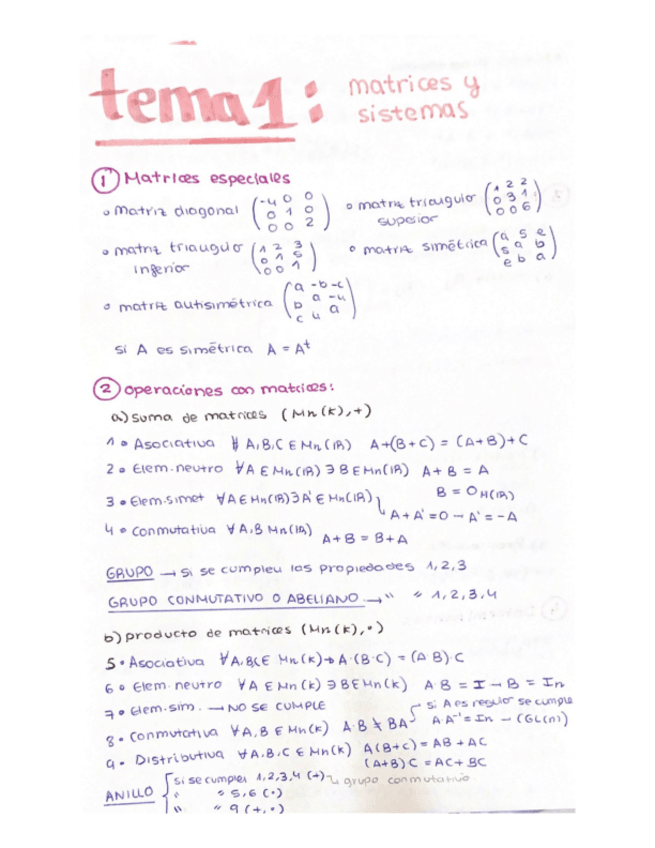 tema 1: matrices y
sistemas
① Matrices especiales
• Matriz diagonal (-4 0 0
0 1 0
0 0 2)
• matriz triangulo superior (1 2 2
0 3 1
0 0 6)
• matriz triangulo inferior (1 2 3
0 1 5
0 0 1)
• matriz simétrica (a s e
s a b
e b a)
• matriz autisimétrica (a -b -c
b a -u
c u a)
si A es simétrica A = Aᵗ
② operaciones con matrices:
a) suma de matrices (Mn(K),+)
1 • Asociativa ∀ A,B,C ∈ Mn(IR) A+(B+C) = (A+B)+C
2 • Elem.neutro ∀A ∈ Mn(IR) ∃ B ∈ Mn(IR) A + B = A
B = 0 M(IR)
3 • Elem.simet ∀A ∈ Mn(IR) ∃ A' ∈ Mn(IR)
↳ A + A' = 0 → A' = -A
4 • conmutativa ∀ A,B Mn(IR) A+B = B+A
GRUPO → si se cumplen las propiedades 1,2,3
GRUPO CONMUTATIVO O ABELIANO → " " 1,2,3,4
b) producto de matrices (Mn(K),•)
5 • Asociativa ∀A,B,C ∈ Mn(K) → A·(B·C) = (A·B)·C
6 • Elem. neutro ∀A ∈ Mn(K) ∃ B ∈ Mn(K) A·B = I → B = In
7 • Elem.sim. → NO SE CUMPLE
si A es regular se cumple
A·A⁻¹ = In → (GL(n))
8 • conmutativa ∀A,B ∈ Mn(K) A·B ≠ BA
9 • Distributiva ∀A,B,C ∈ Mn(K) A(B+C) = AB + AC
(A+B)C = AC + BC
ANILLO { si se cumplen 1,2,3,4 (+) ↳ grupo conmutativo
" " 5,6 (•)
" " 9 (+,•)